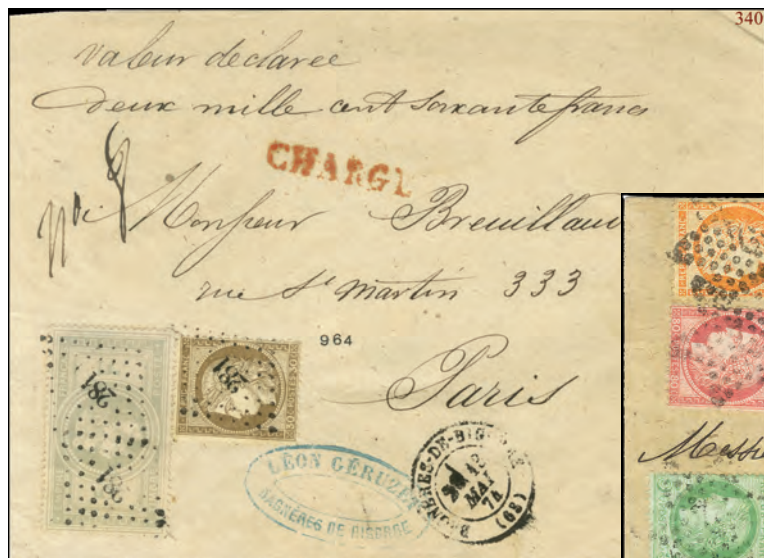 340
valeur déclarée
deux mille cent soixante francs
CHARGE
No 8
Monsieur Breuillaud
rue St Martin 333
964
Paris
281
281
281
LÉON GÉRUZET
BAGNÈRES DE BIGORRE
BAGNÈRES-DE-BIGORRE
13
MAI
74
(63)
Messi